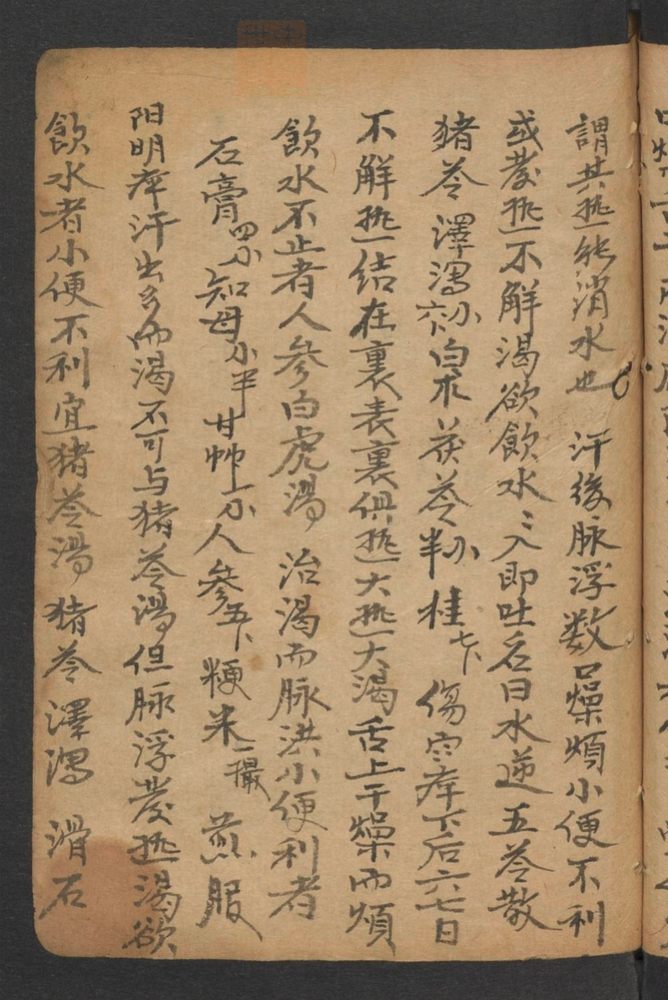 謂其热能消水也 汗後脉浮数口燥煩小便不利
或发热不解渴欲飲水々入即吐名曰水逆五苓散
猪苓 澤瀉 白朮 茯苓 半 桂 七卜 傷寒 下后六七日
不解热结在裏表裏俱热大热大渴舌上干燥而煩
飲水不止者人參白虎湯 治渴而脉洪小便利者
石膏四小 知母小半 甘艸一小 人參五卜 粳米一撮 煎服
阳明 汗出多而渴不可与猪苓湯但脉浮发热渴欲
飲水者小便不利宜猪苓湯 猪苓 澤瀉 滑石